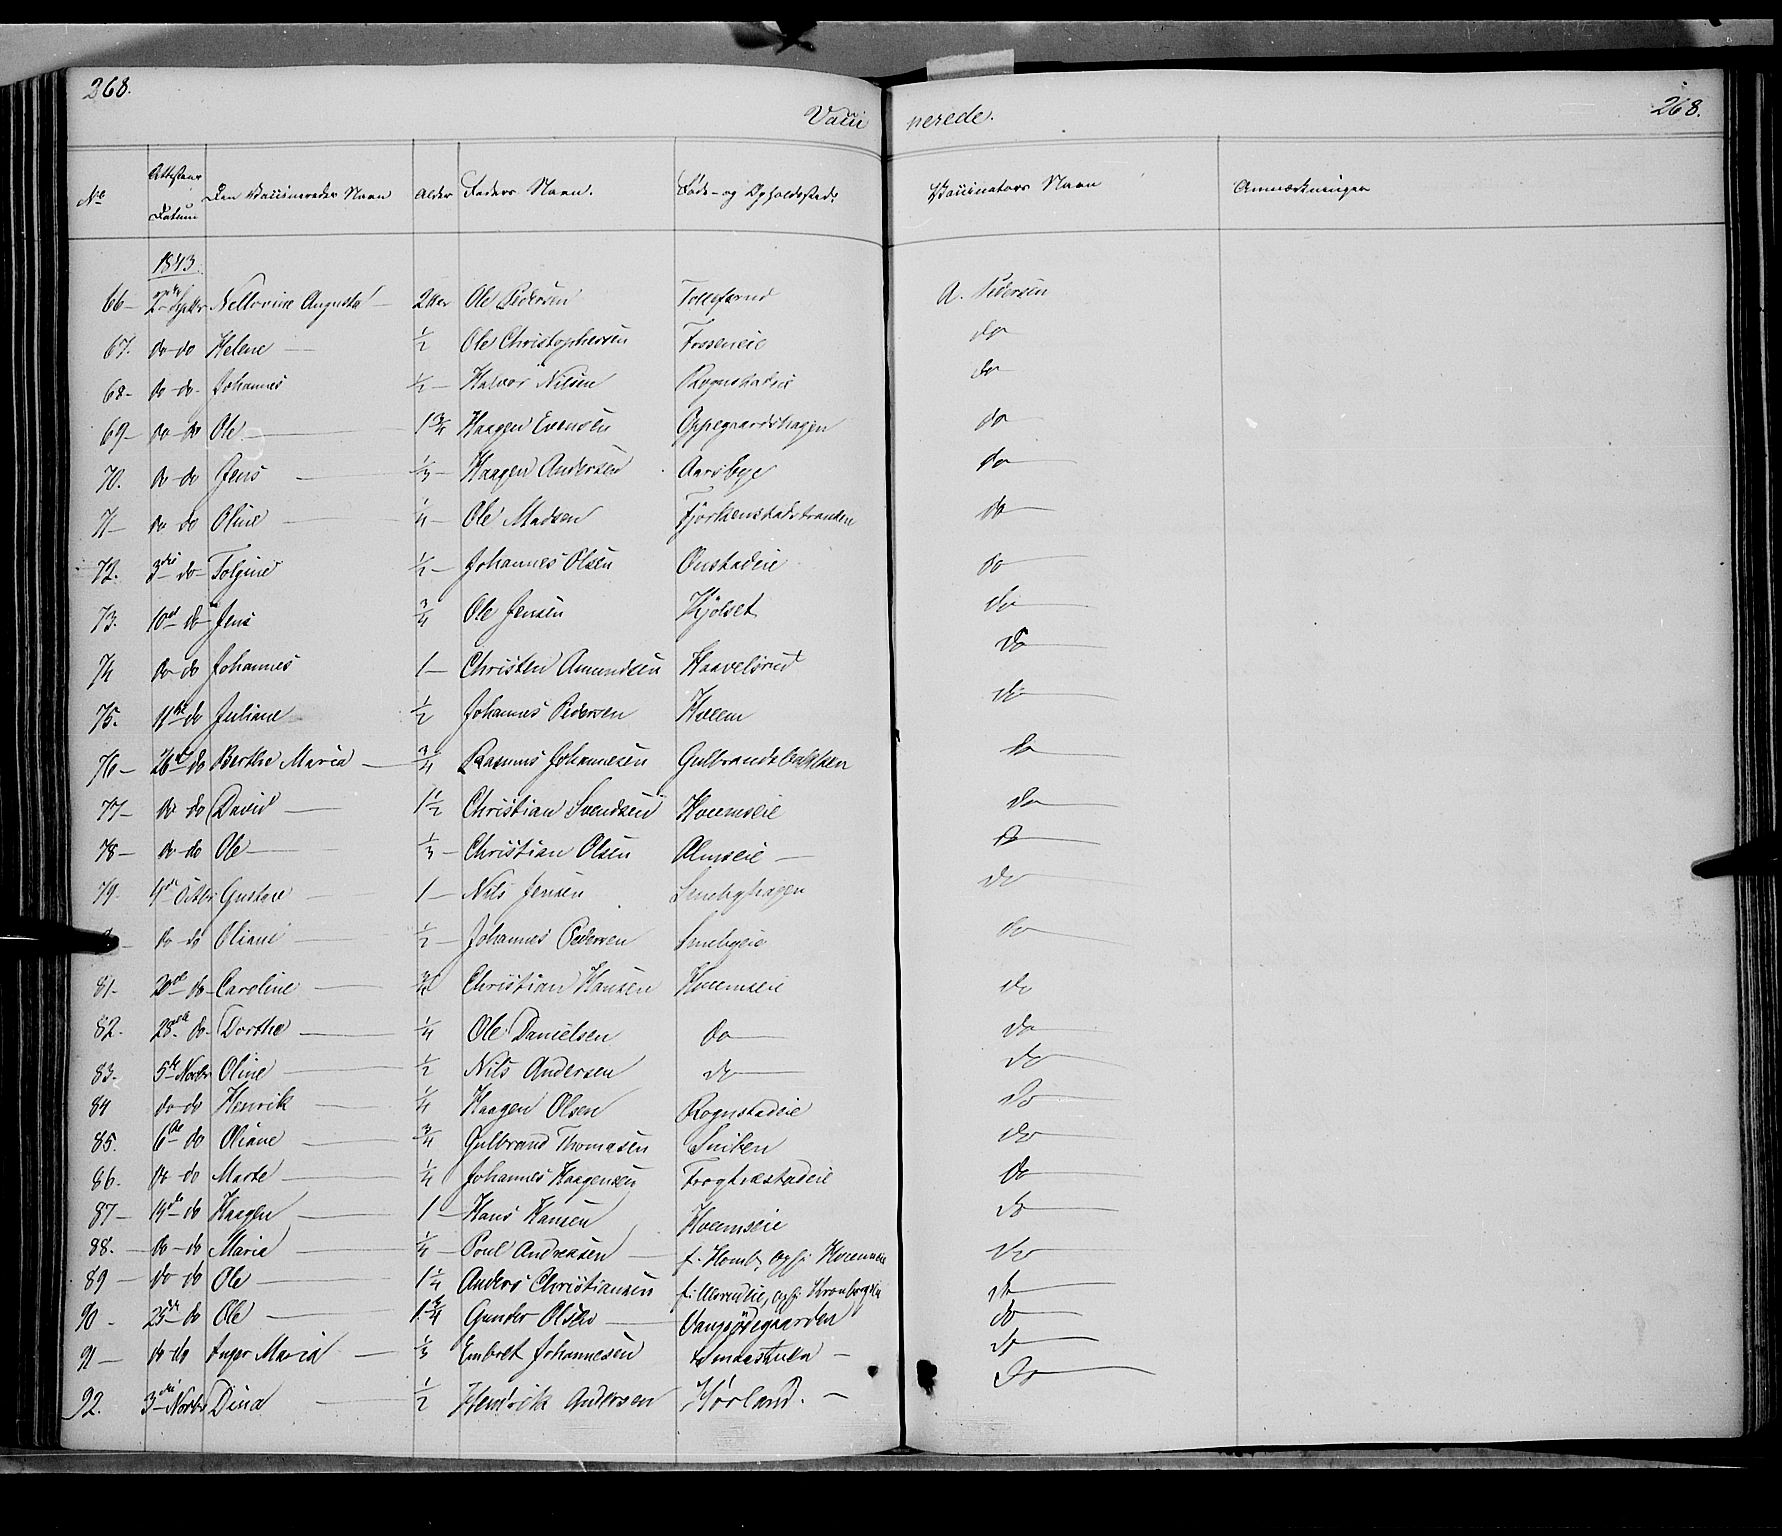 268. 268.
Vacci nerede.
No Attestens Datum Den Vaccineredes Navn Alder Faders Navn. Føde- og Opholdssted. Vaccinators Navn Anmærkninger
1843.
66 - 2 Septbr Nellovine Augusta - 2 Aar Ole Pedersen Tollefsrud A. Pedersen
67. do - do Helene - 1/2 Ole Christophersen Fosseneie do
68 - do - do - Johannes 1/2 - Halvor Nilsen Rognstadeie do
69 - do - do Ole - 1 3/4 Haagen Evensen Oppegaardshagen do
70. do - do Jens - 1/3 - Haagen Andersen Aarsbye do
71 - do do Oline - 1/4 - Ole Madsen Fjorkenstadstranden do
72. 3die do - Tolgine 1/2 - Johannes Olsen Onstadeie do
73. 10de do Jens 3/4 Ole Jensen Kjølset do
74 do - do Johannes 1 - Christen Amundsen Haavelsrud do
75. 11te do Juliane 1/2 Johannes Pedersen Hveem do
76 - 26de do Berthe Maria - 3/4 Rasmus Johannesen Gulbrandsbakken do
77 - do do David - 1 1/2 Christian Svendsen Hveemseie do
78 - do - do Ole - 1/3 - Christian Olsen Almseie - do
79. 4de Octbr Gustave - 1 - Nils Jensen Smebyhagen do
- do - do Oliane - 1/2 - Johannes Pedersen Smebyeie do
81 - 20de do - Caroline - 3/4 Christian Hansen Hveemseie do
82. 28de do - Dorthe - 1/4 Ole Danielsen do - do
83. 5te Novbr Oline - 1/2 Nils Andersen do - do
84 do - do Henrik - 1/4 Haagen Olsen Rognstadeie do
85. 6te do Oliane - 3/4 Gulbrand Thomasen Sniken do
86. do - do Marte - 1/4 Johannes Haagensen Frogtvedstadeie do
87 - 14de do Haagen - 1 - Hans Hansen Hveemseie do
88. - do - do Marie - 1/4 - Poul Andreasen - f. Homb, oph: Hveemseie do
89 - do do Ole - 1 1/4 Anders Christiansen do
90 - 25de do Ole - 1 3/4 Gunder Olsen - Vangsødegaarden do
91 - do do Inger Maria - 1/3 Embret Johannesen do
92. 3die Novbr Dina - 1/2 Henrik Andersen Hørland. - do